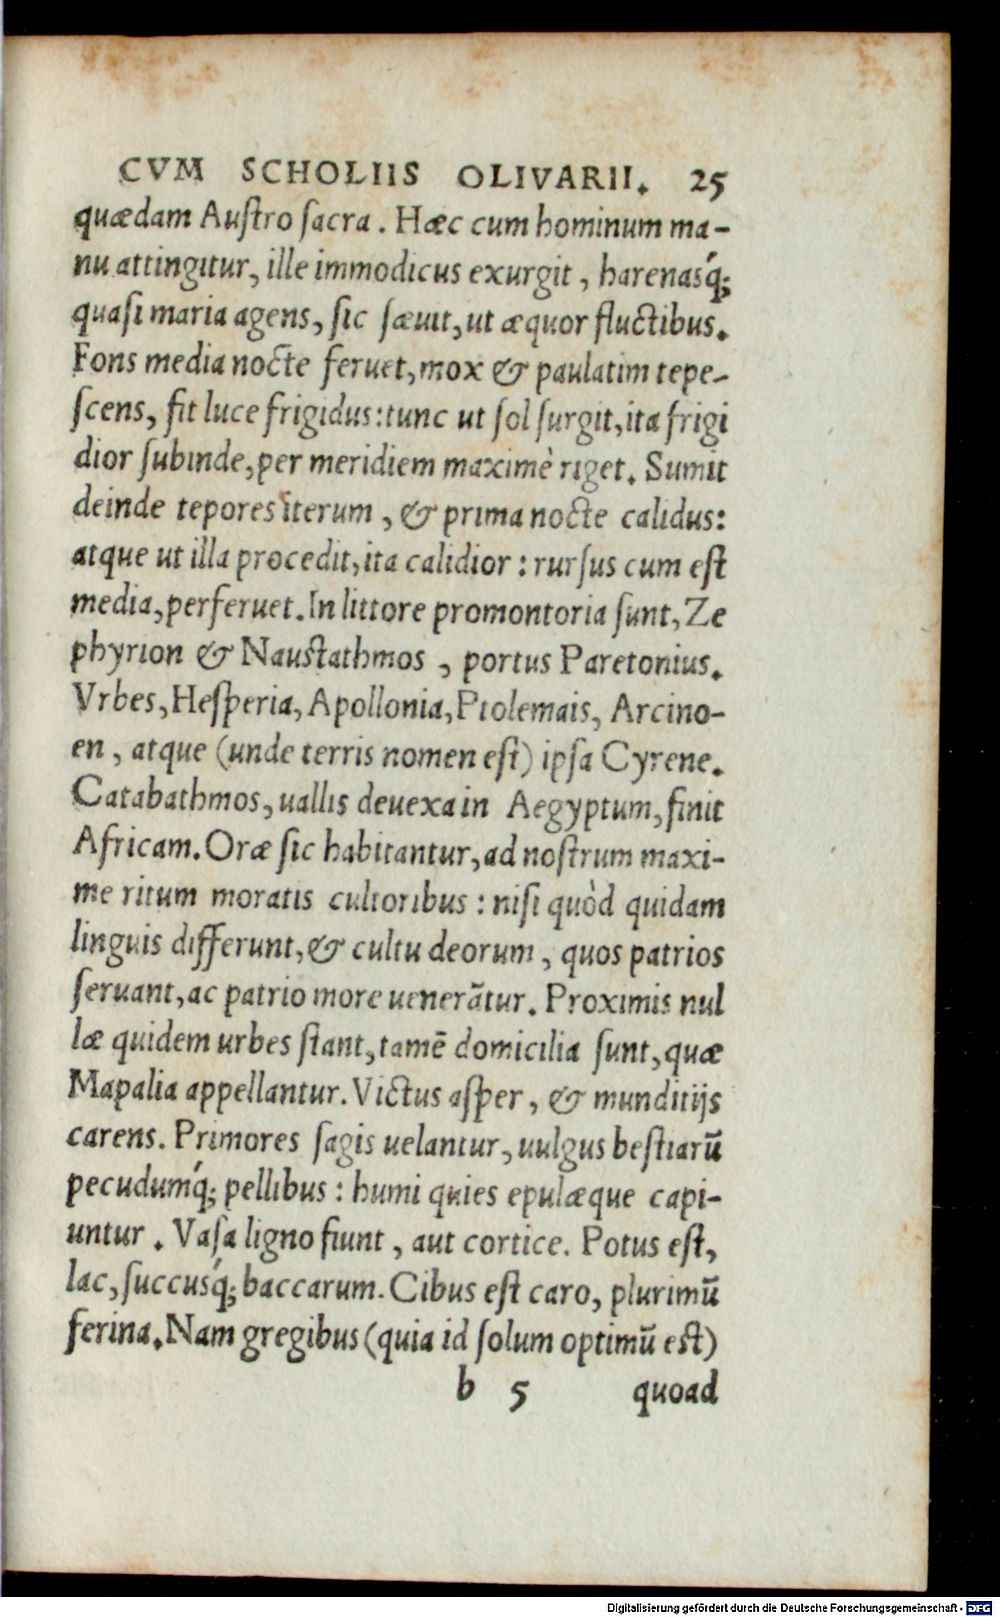 CVM SCHOLIIS OLIVARII. 25
quædam Auſtro ſacra. Hæc cum hominum ma-
nu attingitur, ille immodicus exurgit, harenasq́;
quaſi maria agens, ſic ſæuit, ut æquor fluctibus.
Fons media nocte feruet, mox & paulatim tepe-
ſcens, fit luce frigidus: tunc ut ſol ſurgit, ita frigi
dior ſubinde, per meridiem maximè riget. Sumit
deinde tepores iterum, & prima nocte calidus:
atque ut illa procedit, ita calidior: rurſus cum eſt
media, perferuet. In littore promontoria ſunt, Ze
phyrion & Nauſtathmos, portus Paretonius.
Vrbes, Heſperia, Apollonia, Ptolemais, Arcino-
en, atque (unde terris nomen eſt) ipſa Cyrene.
Catabathmos, uallis deuexa in Aegyptum, finit
Africam. Oræ ſic habitantur, ad noſtrum maxi-
me ritum moratis cultoribus: niſi quòd quidam
linguis differunt, & cultu deorum, quos patrios
ſeruant, ac patrio more uenerãtur. Proximis nul
læ quidem urbes ſtant, tamẽ domicilia ſunt, quæ
Mapalia appellantur. Victus aſper, & munditijs
carens. Primores ſagis uelantur, uulgus beſtiarũ
pecudumq́; pellibus: humi quies epulæque capi-
untur. Vaſa ligno fiunt, aut cortice. Potus eſt,
lac, ſuccusq́; baccarum. Cibus eſt caro, plurimũ
ferina. Nam gregibus (quia id ſolum optimũ eſt)
b 5 quoad
Digitalisierung gefördert durch die Deutsche Forschungsgemeinschaft - DFG